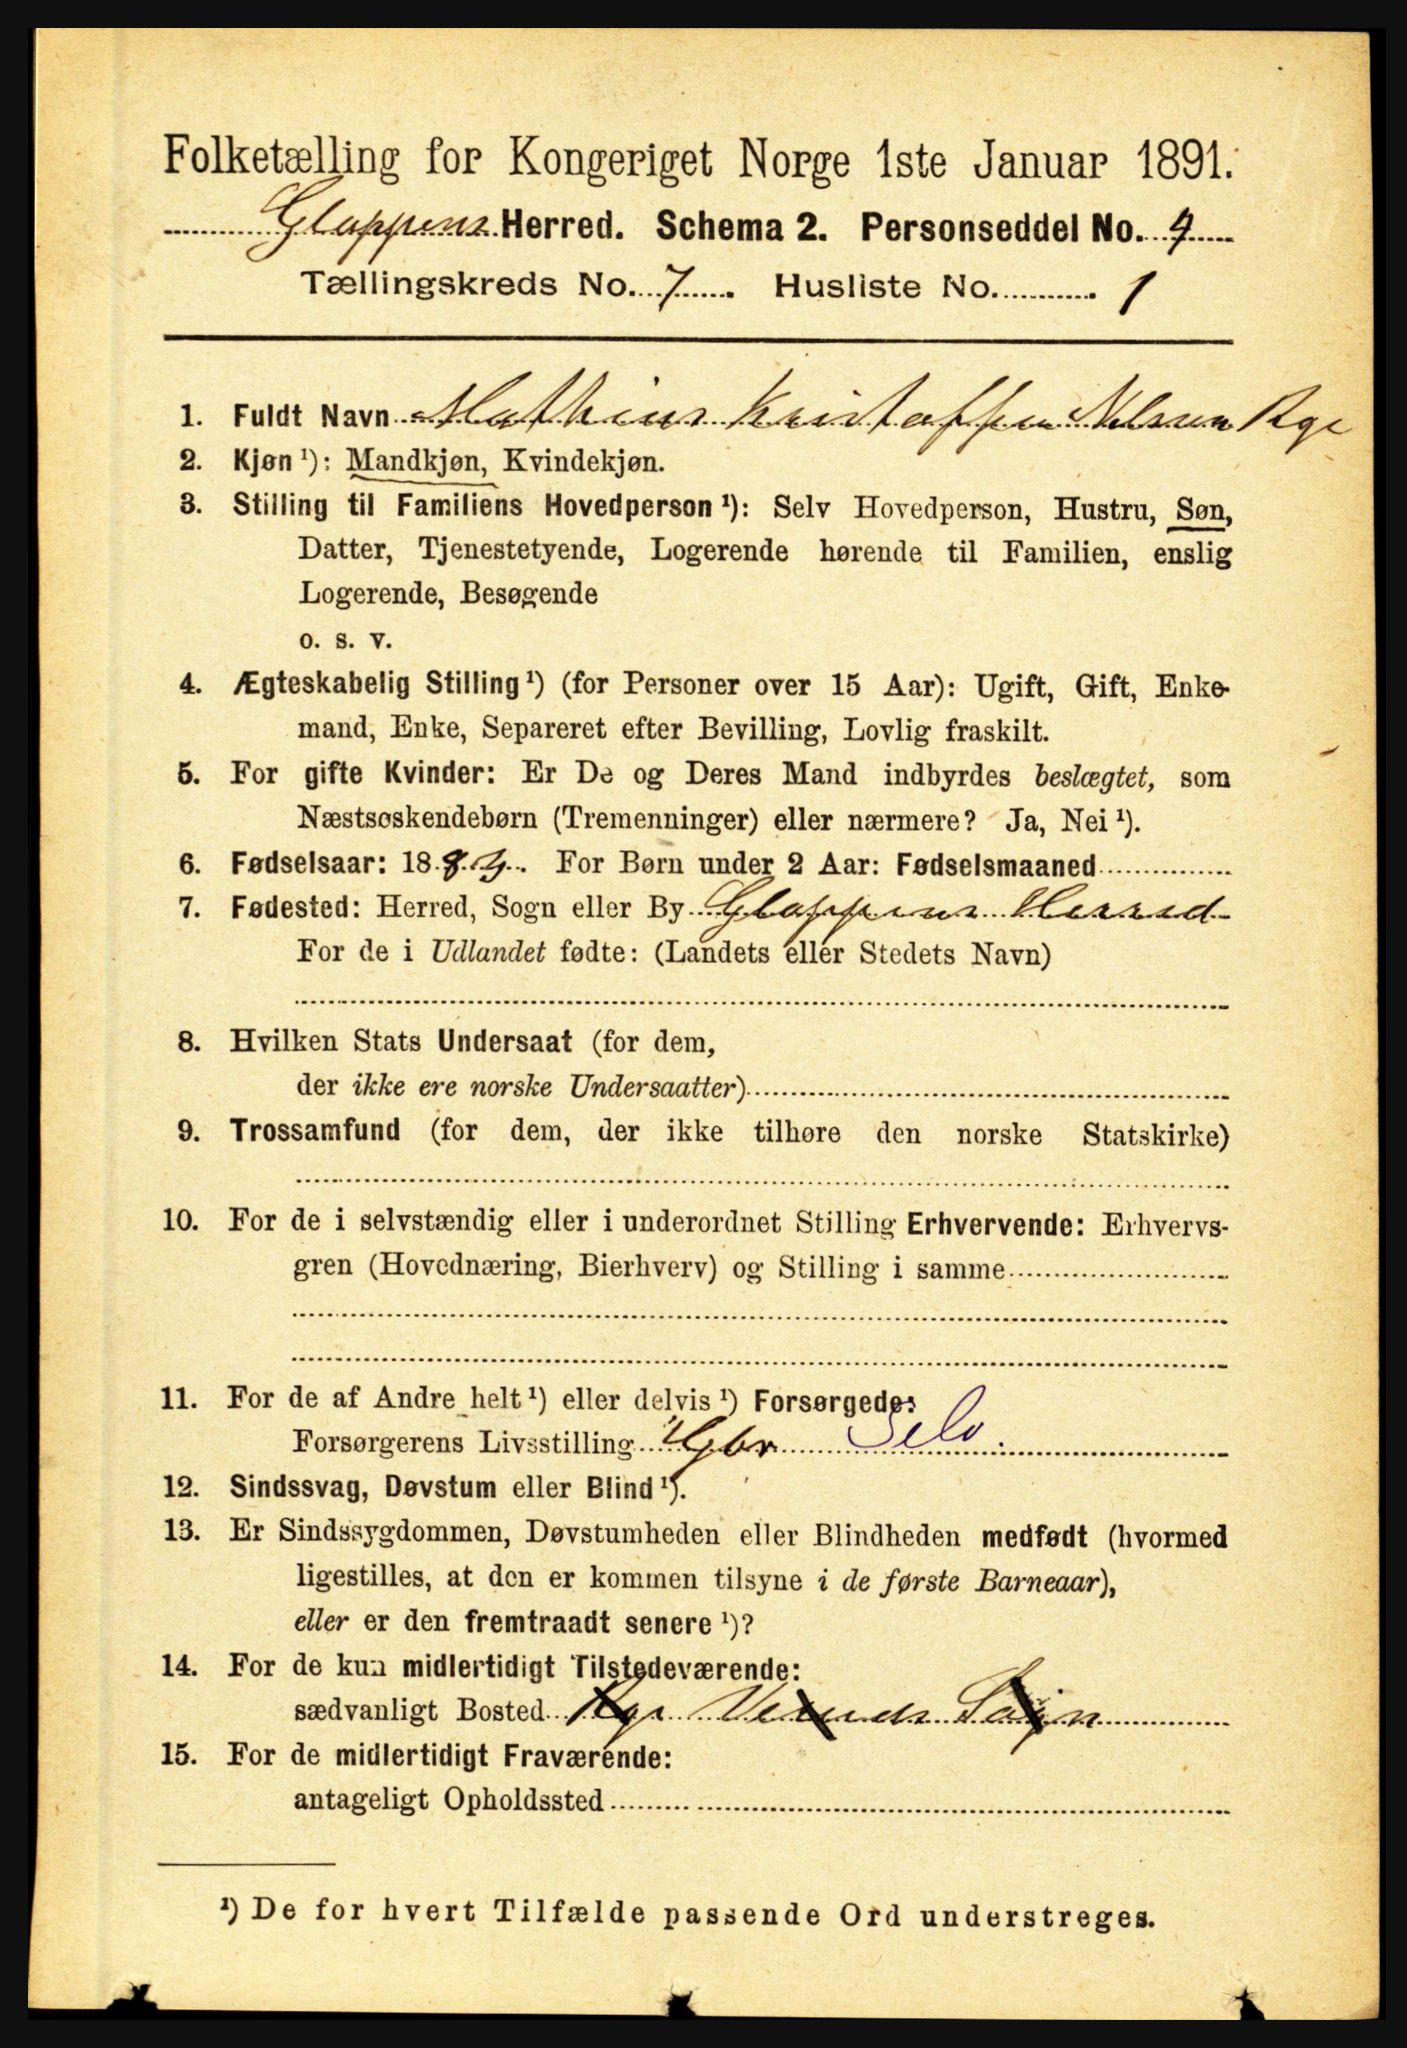 Folketælling for Kongeriget Norge 1ste Januar 1891.
Gloppens Herred. Schema 2. Personseddel No. 4
Tællingskreds No. 7. Husliste No. 1
1. Fuldt Navn Mathius Kristoffer Nilsen Ryc
2. Kjøn ¹): Mandkjøn, Kvindekjøn.
3. Stilling til Familiens Hovedperson ¹): Selv Hovedperson, Hustru, Søn,
Datter, Tjenestetyende, Logerende hørende til Familien, enslig
Logerende, Besøgende
o. s. v.
4. Ægteskabelig Stilling ¹) (for Personer over 15 Aar): Ugift, Gift, Enke-
mand, Enke, Separeret efter Bevilling, Lovlig fraskilt.
5. For gifte Kvinder: Er De og Deres Mand indbyrdes beslægtet, som
Næstsøskendebørn (Tremenninger) eller nærmere? Ja, Nei ¹).
6. Fødselsaar: 18 . For Børn under 2 Aar: Fødselsmaaned
7. Fødested: Herred, Sogn eller By Gloppens Herred
For de i Udlandet fødte: (Landets eller Stedets Navn)
8. Hvilken Stats Undersaat (for dem,
der ikke ere norske Undersaatter)
9. Trossamfund (for dem, der ikke tilhøre den norske Statskirke)
10. For de i selvstændig eller i underordnet Stilling Erhvervende: Erhvervs-
gren (Hovednæring, Bierhverv) og Stilling i samme
11. For de af Andre helt ¹) eller delvis ¹) Forsørgede:
Forsørgerens Livsstilling Gbr Selv.
12. Sindssvag, Døvstum eller Blind ¹).
13. Er Sindssygdommen, Døvstumheden eller Blindheden medfødt (hvormed
ligestilles, at den er kommen tilsyne i de første Barneaar),
eller er den fremtraadt senere ¹)?
14. For de kun midlertidigt Tilstedeværende:
sædvanligt Bosted
15. For de midlertidigt Fraværende:
antageligt Opholdssted
¹) De for hvert Tilfælde passende Ord understreges.